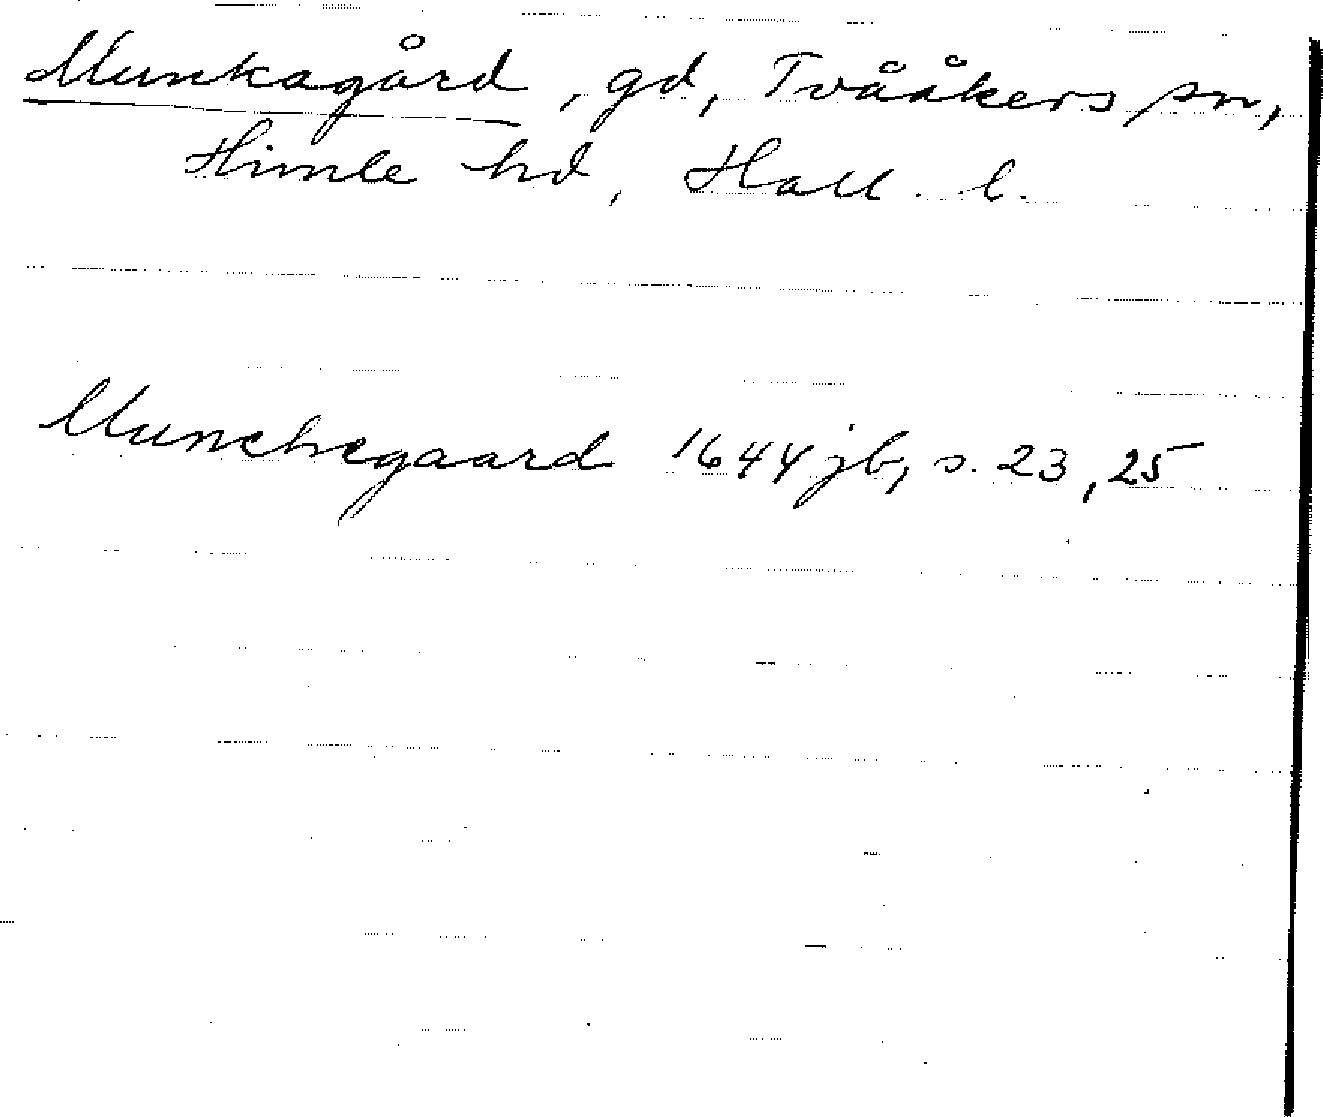 Munkagård, gd, Tvååkers sn,
Himle hd, Hall. l.
Munchegaard 1644 jb, s. 23, 25